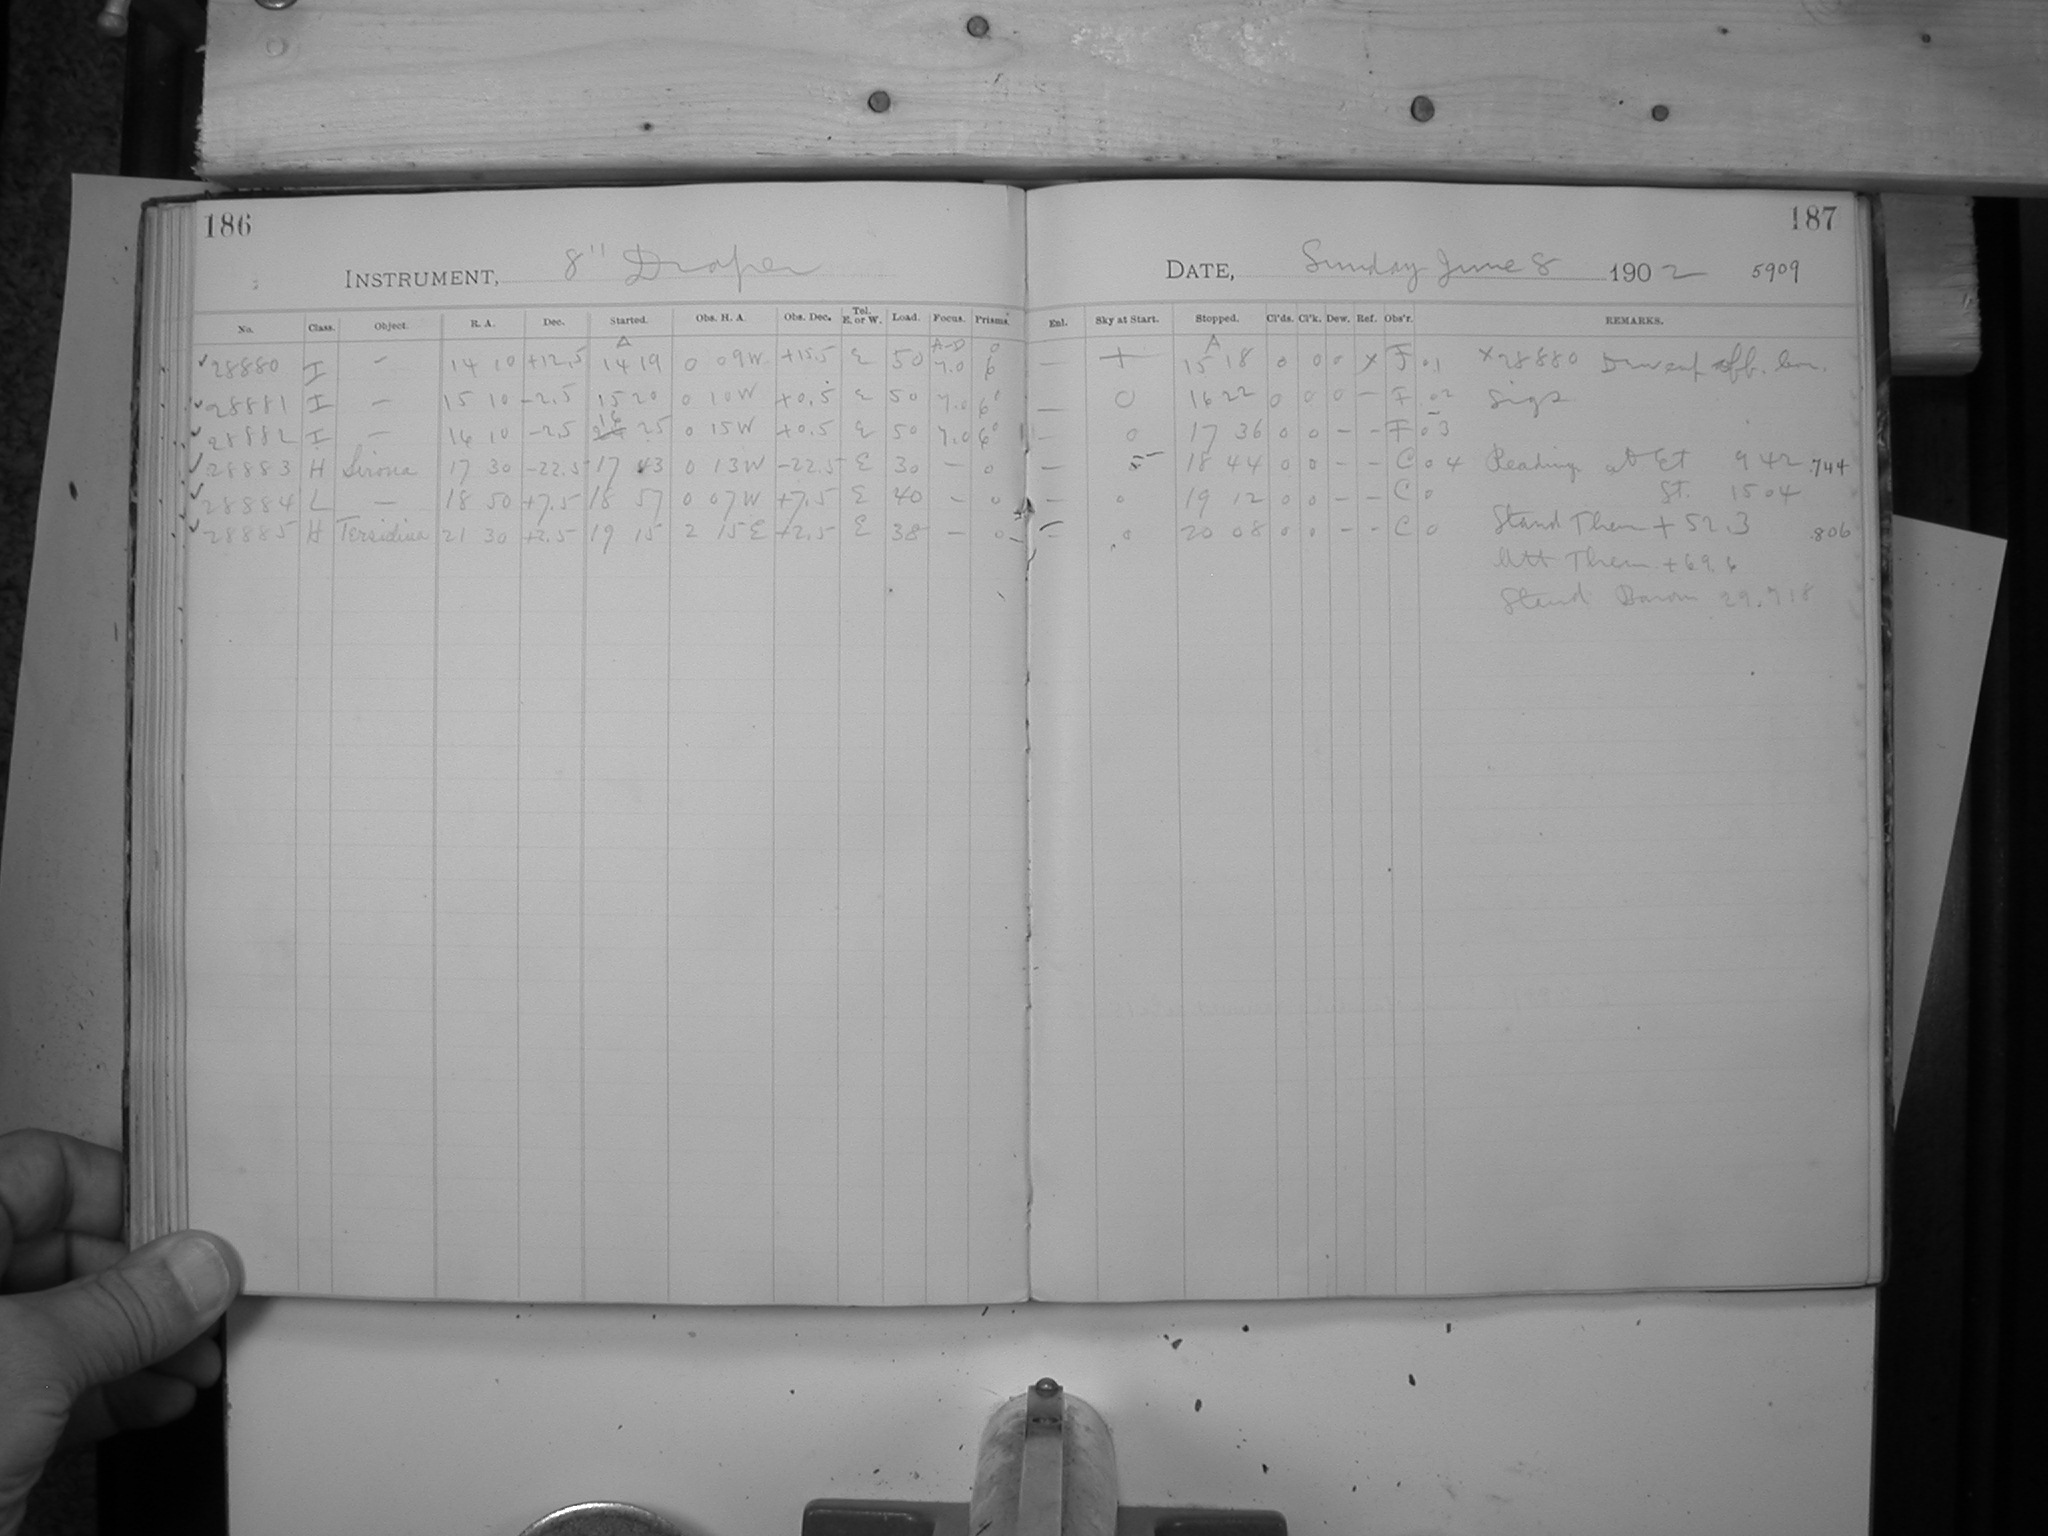 186
187
INSTRUMENT, 8" Draper
DATE, Sunday June 8 1902 5909
No. Class. Object. R. A. Dec. Started. Obs. H. A. Obs. Dec. Tel. E. or W. Load. Focus. Prisms. Enl. Sky at Start. Stopped. Cl'ds. Cl'k. Dew. Ref. Obs'r. REMARKS.
A A-D A
28880 I — 14 10 +12.5 14 19 0 09W +15.5 E 50 7.0 6° — + 15 18 0 0 0 x F .01 x28880
28881 I — 15 10 -2.5 15 20 0 10W +0.5 E 50 7.0 6° — 0 16 22 0 0 0 — F 02 Sigs
28882 I — 16 10 -2.5 16 25 0 15W +0.5 E 50 7.0 6° — 0 17 36 0 0 - - F 03
28883 H Sirona 17 30 -22.5 17 43 0 13W -22.5 E 30 — 0 — 5 18 44 0 0 - - C 04 Reading at Et 9 42 .744
28884 L — 18 50 +7.5 18 57 0 07W +7.5 E 40 — 0 — 0 19 12 0 0 - - C 0 St. 15 04
28885 H Tersidina 21 30 +2.5 19 15 2 15E +2.5 E 38 — 0 — 0 20 08 0 0 - - C 0 Stand Them + 52.3 .806
Att Them. +69.6
Stand Barom 29.718